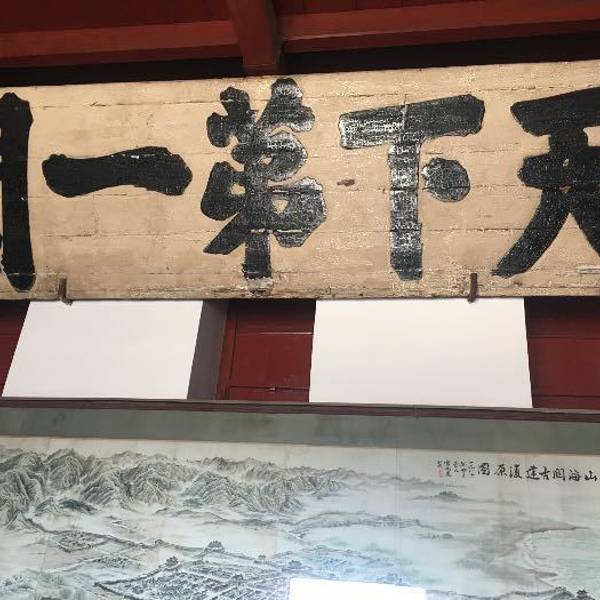 天下第一
山海関古建復原圖